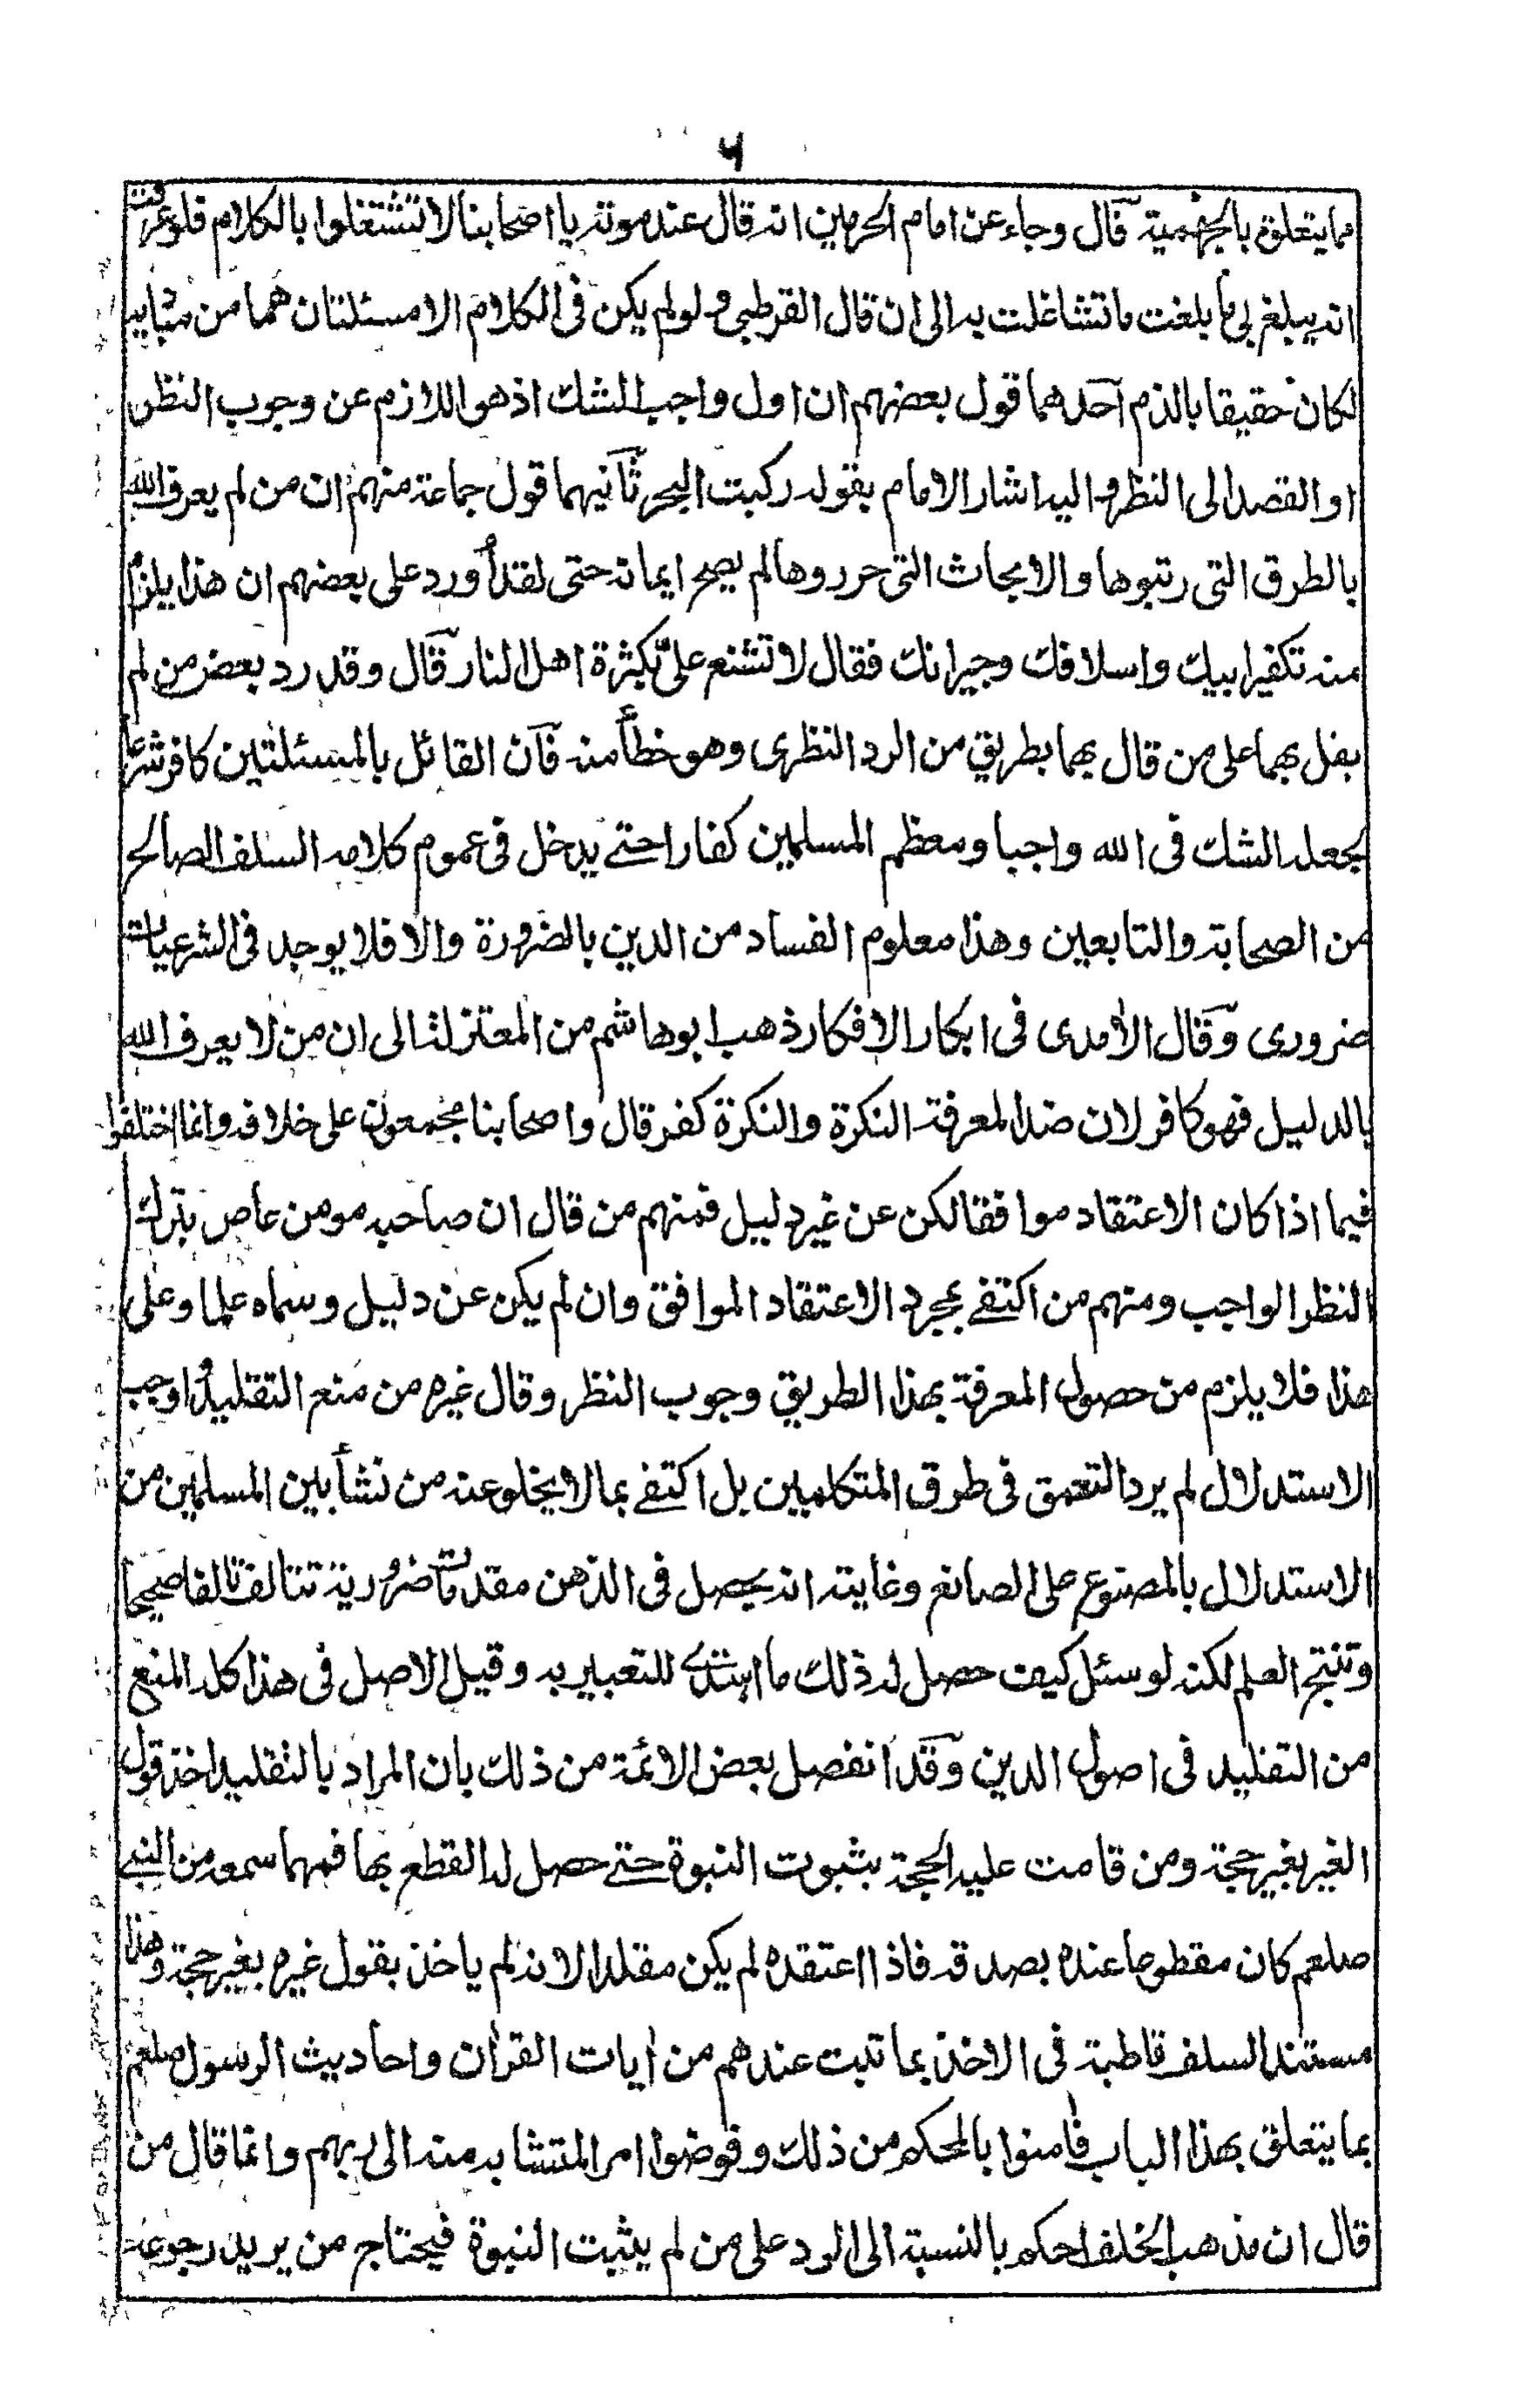 ۶
مما يتعلق بالجهمية قال وجاء عن امام الحرمين انه قال عند موته يا اصحابنا لا تشتغلوا بالكلام فلو عرفت
انه يبلغ بى ما بلغت ما تشاغلت به الى ان قال القرطبى ولو لم يكن فى الكلام الا مسئلتان هما من مباديه
لكان حقيقا بالذم احدهما قول بعضهم ان اول واجب الشك اذ هو اللازم عن وجوب النظر
او القصد الى النظر واليه اشار الامام بقوله ركبت البحر ثانيهما قول جماعة منهم ان من لم يعرف الله
بالطرق التى رتبوها والابحاث التى حرروها لم يصح ايمانه حتى لقد أورد على بعضهم ان هذا يلزم
منه تكفير ابيك واسلافك وجيرانك فقال لا تشنع علىّ بكثرة اهل النار قال وقد رد بعض من لم
يقل بهما على من قال بهما بطريق من الرد النظرى وهو خطأ منه فان القائل بالمسئلتين كافر شرعا
لجعله الشك فى الله واجبا ومعظم المسلمين كفارا حتے يدخل فى عموم كلامه السلف الصالح
من الصحابة والتابعين وهذا معلوم الفساد من الدين بالضرورة والا فلا يوجد فى الشرعيات
ضرورى وقال الآمدى فى ابكار الافكار ذهب ابو هاشم من المعتزلة الى ان من لا يعرف الله
بالدليل فهو كافر لان ضد المعرفة النكرة والنكرة كفر قال واصحابنا مجمعون على خلافه وانما اختلفوا
فيما اذا كان الاعتقاد موافقا لكن عن غير دليل فمنهم من قال ان صاحبه مومن عاص بترك
النظر الواجب ومنهم من اكتفے بمجرد الاعتقاد الموافق وان لم يكن عن دليل وسماه علما وعلى
هذا فلا يلزم من حصول المعرفة بهذا الطريق وجوب النظر وقال غيره من منع التقليد واوجب
الاستدلال لم يرد التعمق فى طرق المتكلمين بل اكتفے بما لا يخلو عنه من نشأ بين المسلمين من
الاستدلال بالمصنوع على الصانع وغايته انه يحصل فى الذهن مقدمات ضرورية تتالف تالفا صحيحا
وتنتج العلم لكنه لو سئل كيف حصل له ذلك ما اهتدے للتعبير به وقيل الاصل فى هذا كله المنع
من التقليد فى اصول الدين وقد انفصل بعض الائمة من ذلك بان المراد بالتقليد اخذ قول
الغير بغير حجة ومن قامت عليه الحجة بثبوت النبوة حتے حصل له القطع بها فمهما سمعه من النبے
صلعم كان مقطوعا عنده بصدقه فاذا اعتقده لم يكن مقلدا لانه لم ياخذ بقول غيره بغير حجة وهذا
مستند السلف قاطبة فى الاخذ بما ثبت عندهم من آيات القرآن واحاديث الرسول صلعم
بما يتعلق بهذا الباب فآمنوا بالمحكم من ذلك وفوضوا امر المتشابه منه الى ربهم وانما قال من
قال ان مذهب الخلف احكم بالنسبة الى الرد على من لم يثبت النبوة فيحتاج من يريد رجوعه